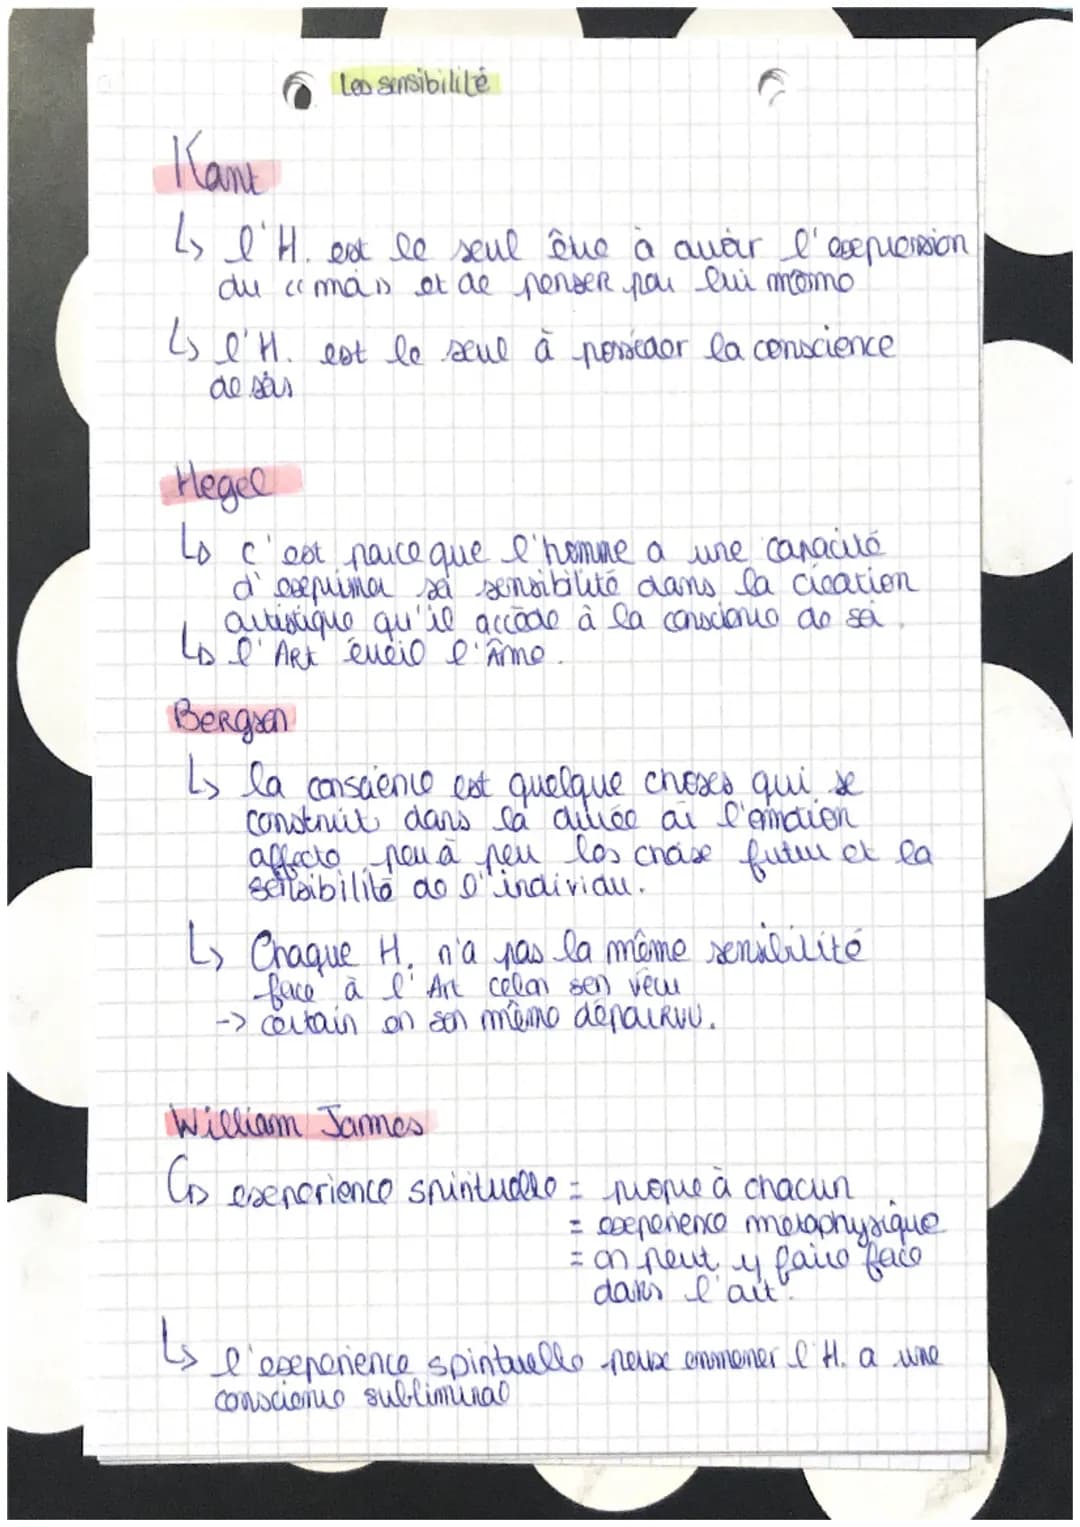 Les sensibilité
Kant
↳ l'H. est le seul être à avoir l'expression
du "moi" et de penser par lui même
↳ l'H. est le seul à posséder la conscience
de sois
Hegel
↳ c'est parceque l'homme a une capacité
d'exprimer sa sensibilité dans la création
artistique qu'il accède à la conscience de soi.
↳ l'Art éveil l'âme.
Bergson
↳ la conscience est quelque choses qui se
construit dans la durée où l'émotion
affecte peu à peu les choix futur et la
sensibilité de l'individu.
↳ Chaque H. n'a pas la même sensibilité
face à l'Art celon sen vécu
-> certain en son même dépourvu.
William James
↳ experience spirituelle = propre à chacun.
= experience metaphysique
= on peut y faire face
dans l'art.
↳ l'experience spirituelle peux emmener l'H. a une
conscience subliminal